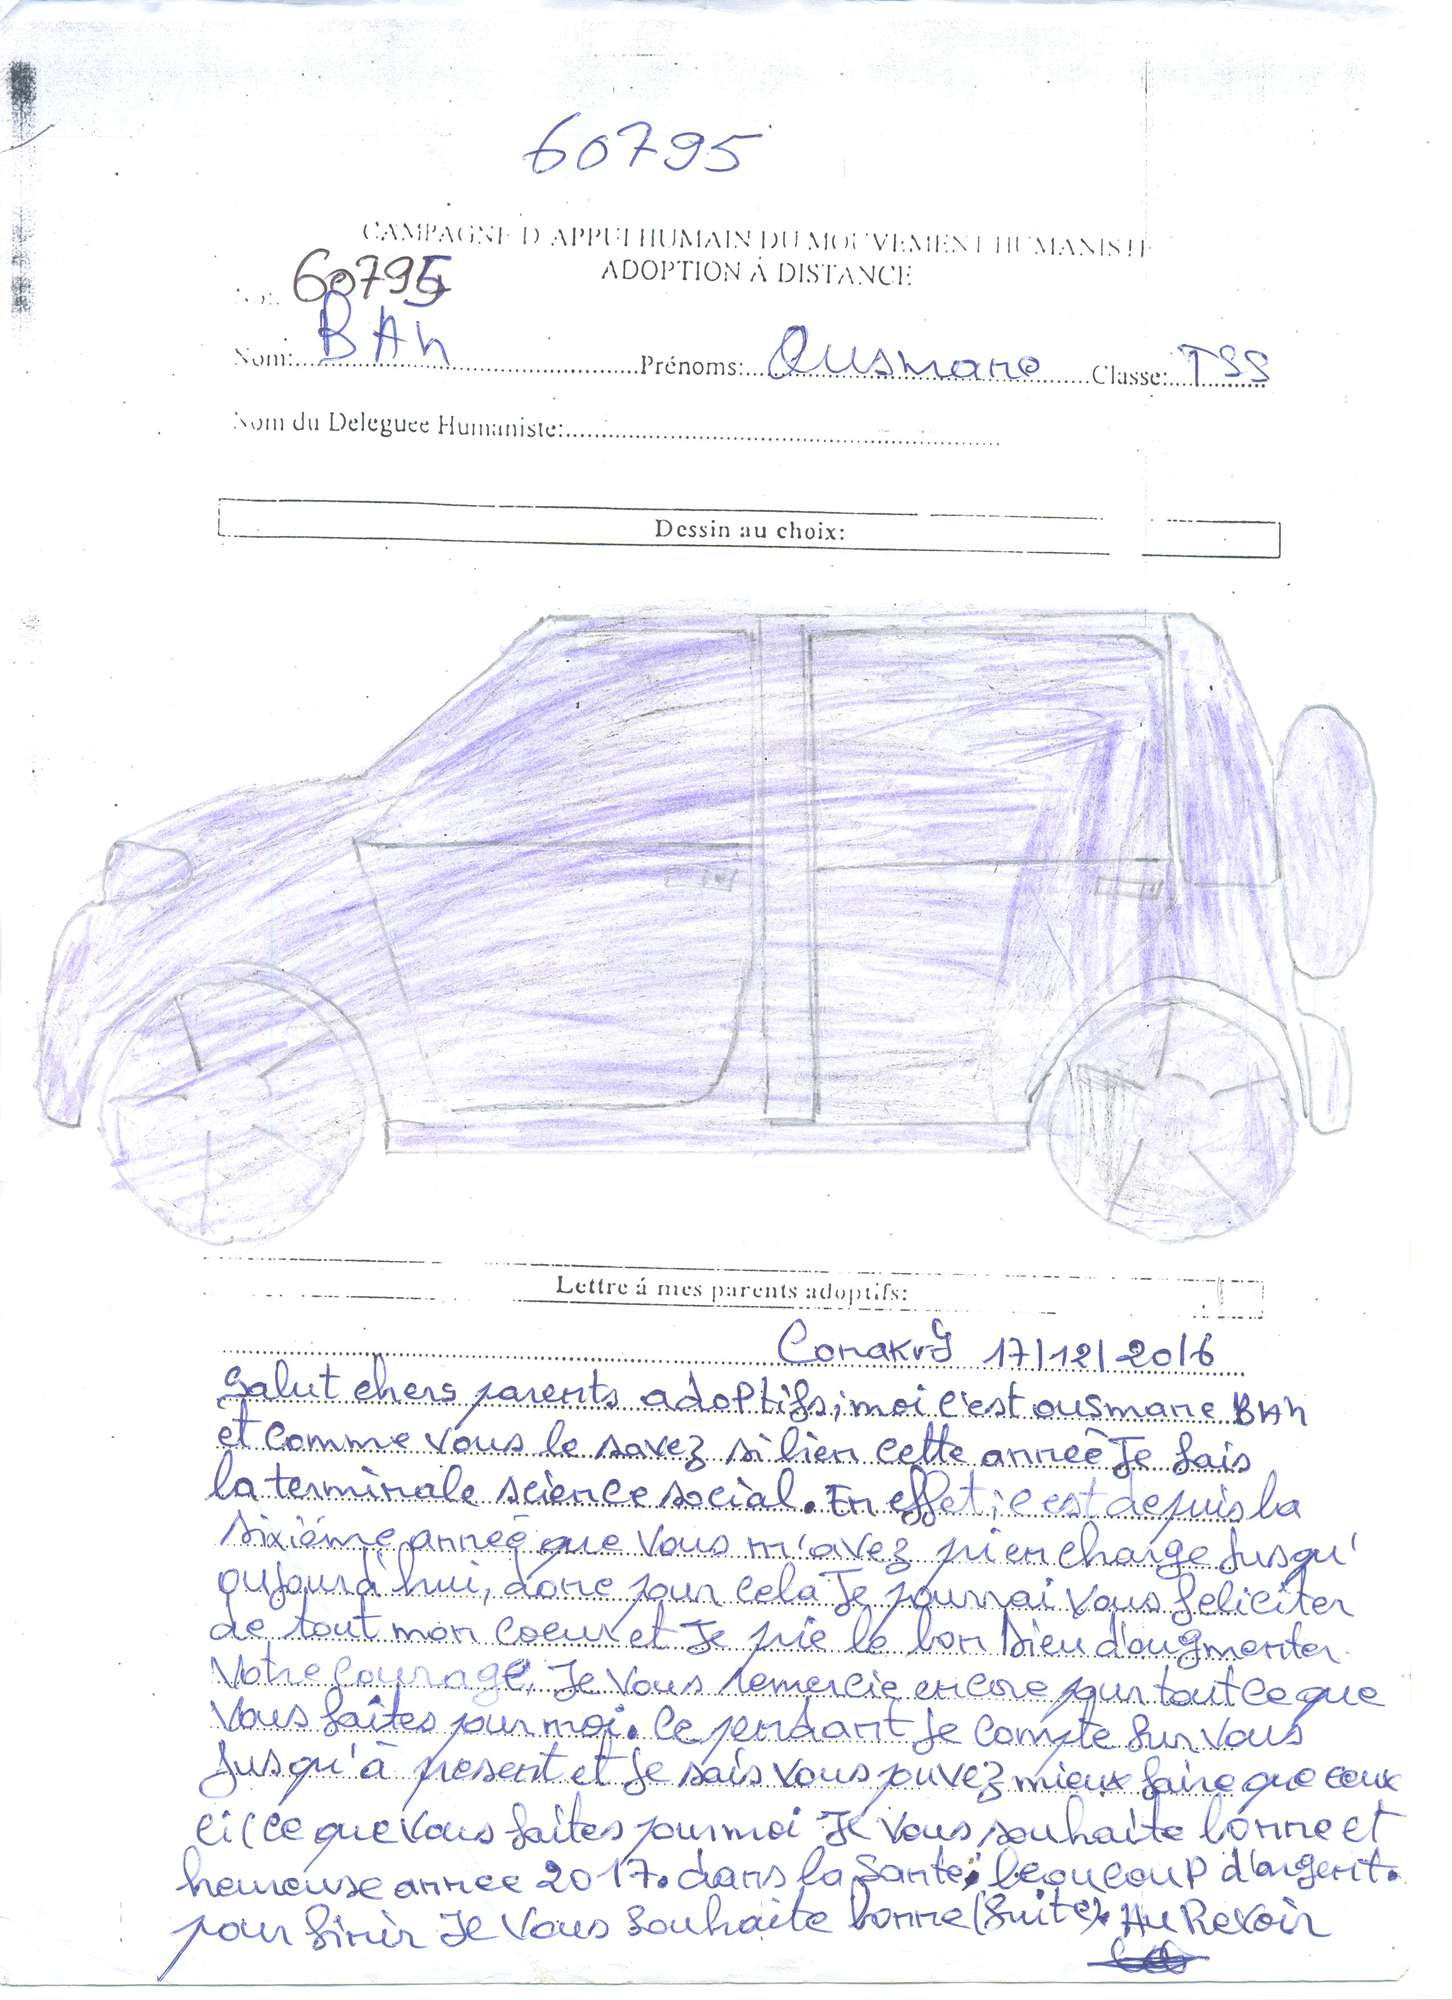 60795
CAMPAGNE D'APPUI HUMAIN DU MOUVEMENT HUMANISTE
ADOPTION Á DISTANCE
No: 60795
Nom: BAh Prénoms: Ousmane Classe: TSS
Nom du Deleguee Humaniste:
Dessin au choix:
Lettre á mes parents adoptifs:
Conakry 17/12/2016
Salut chers parents adoptifs; moi c'est ousmane BAh
et comme vous le savez si bien cette anneè Je fais
la terminale science social. En effet; c'est depuis la
sixième anneè que vous m'avez pi en charge Jusqu'
aujourd'hui, donc pour cela Je pourrai vous feliciter
de tout mon coeur et Je prie le bon Dieu d'augmenter
votre courage. Je vous remercie encore pour tout ce que
vous faites pour moi. Ce pendant Je compte sur vous
Jusqu'à present et Je sais vous pouvez mieux faire que ceux
ci (ce que vous faites pour moi Je vous souhaite bonne et
heureuse annee 2017. dans la Sante; beaucoup d'argent.
pour finir Je vous souhaite bonne (suite). Au Revoir